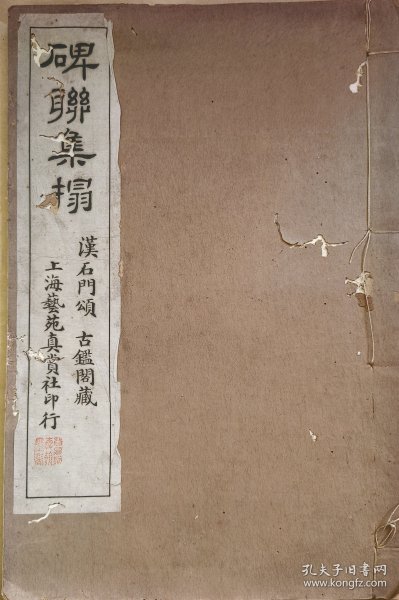 碑聯集搨
漢石門頌 古鑑閣藏
上海藝苑真賞社印行
孔夫子旧书网
www.kongfz.com